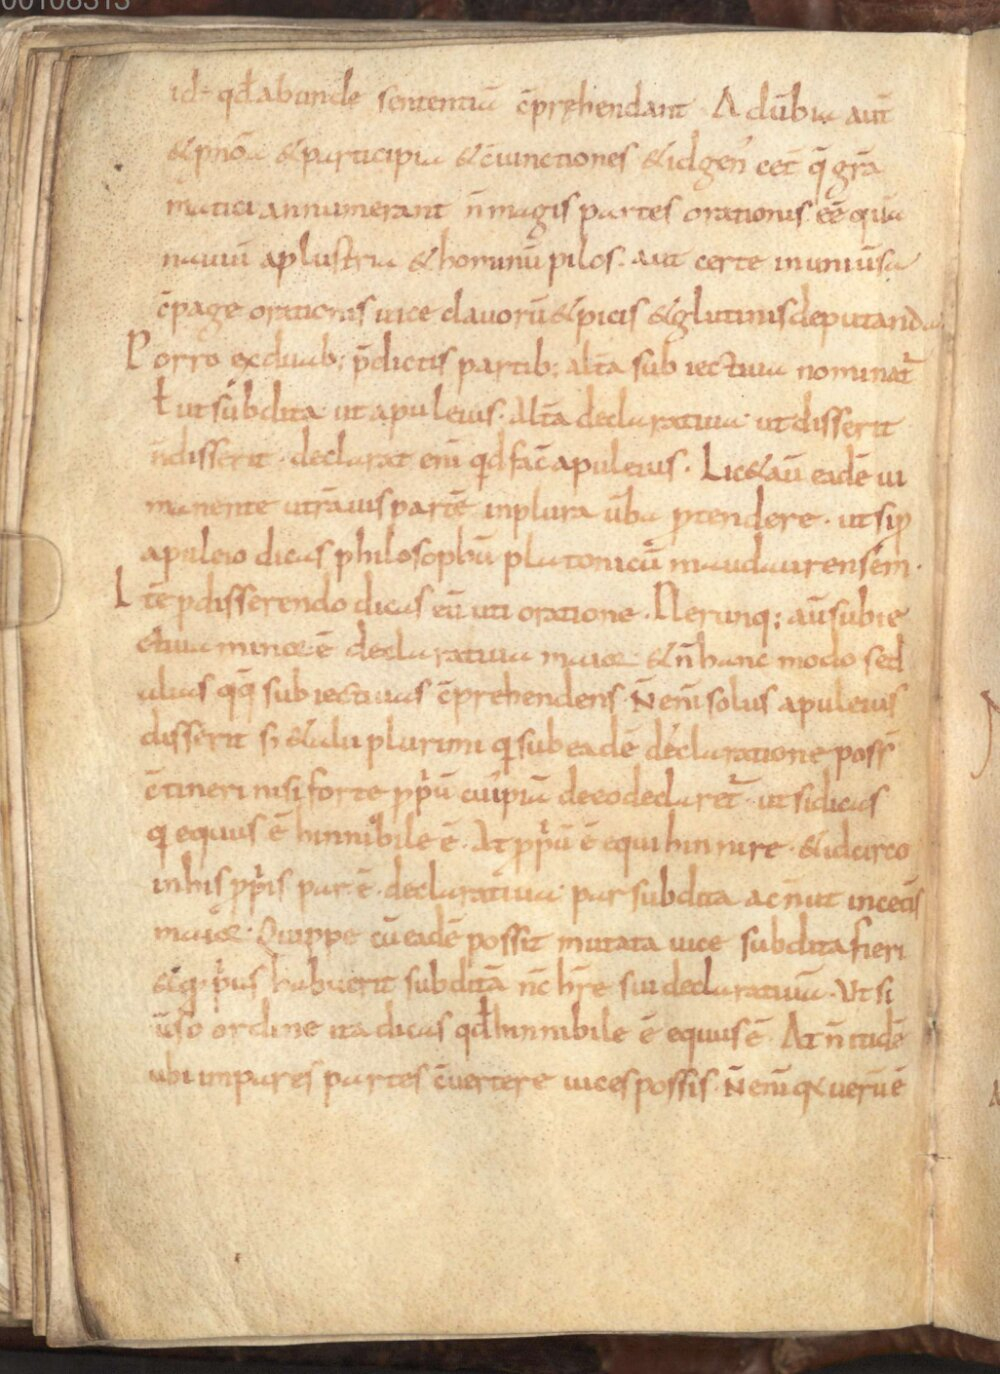 00108313
id÷ qđ abunde sententiā c̄pręhendant. Adūbia aut̄
&pnōa &participia &c̄iunctiones &idgen̄ cet̄ q̄ grā
matici annumerant n̄ magis partes orationis ēē quā
nauiū aplustria &hominū pilos. aut certe inuniūsa
c̄page orationis uice clauorū &picis &glutinis deputanda
Porro exduab; p̄dictis partib; alt̄a subiectiua nominat̄
ł ut sūbdita ut apuleius. alt̄a declaratiua ut disserit
n̄disserit. declarat eni̅ qd fac̄ apuleius. Lic& aū eadē ui
manente utrāuis partē inplura ūba ptendere. ut si p
apuleio dicas philosophū platonicū maudaurensem.
Itē pdisserendo dicas eū uti oratione. Plerunq; aū subie
ctiua minor ē declaratiua maior &n̄ hanc modo sed
alias qq̄ subiectiuas c̄prehendens. N̄ eni̅ solus apuleius
disserit si &alii plurimi q subeadē declaratione poss̄
c̄tineri nisi forte pp̄ū cuipiā deeo declaret̄. ut si dicas
q equus ē hinnibile ē. At pp̄ū ē equi hinnire. &idcirco
inhis pp̄is par ē. declaratiua par subdita ac n̄ ut incet̄is
maior. Quippe cū eadē possit mutata uice subdita fieri
&q p̄us habuerit subditā nc̄ hr̄e sui declaratiuā. Ut si
ūso ordine ita dicas qđ hinnibile ē equus ē. At n̄ itidē
ubi impares partes c̄uertere uices possis. N̄ eni̅ q uerū ē